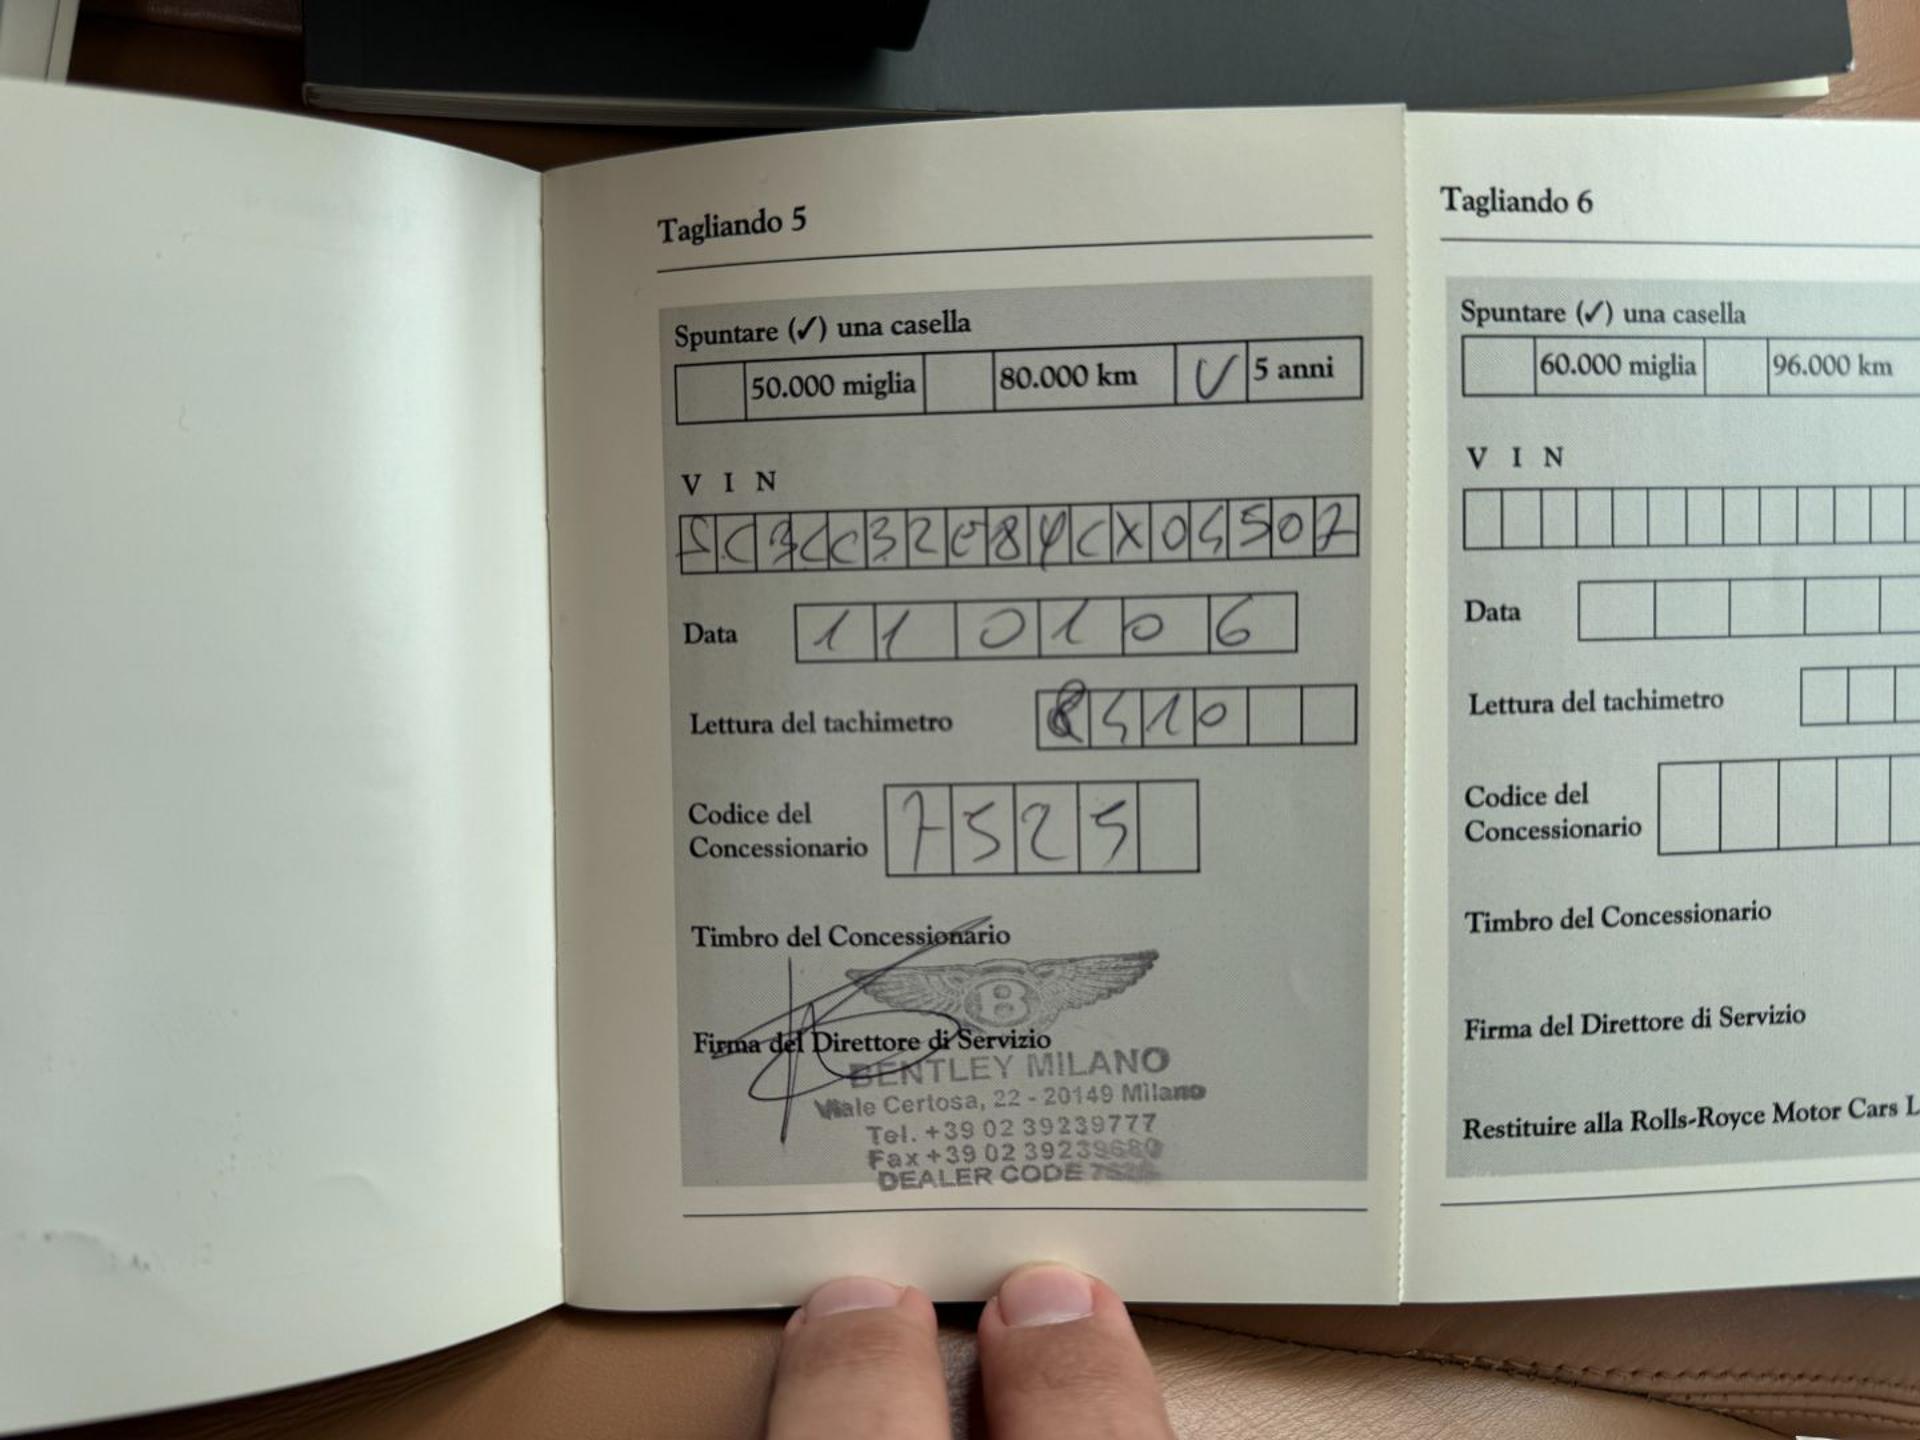 Tagliando 5
Spuntare (✓) una casella
50.000 miglia 80.000 km ✓ 5 anni
V I N
Data 1 1 0 1 0 6
Lettura del tachimetro 8 5 1 0
Codice del
Concessionario 7 5 2 5
Timbro del Concessionario
Firma del Direttore di Servizio
BENTLEY MILANO
Viale Certosa, 22 - 20149 Milano
Tel. +39 02 39239777
Fax +39 02 39239680
DEALER CODE
Tagliando 6
Spuntare (✓) una casella
60.000 miglia 96.000 km
V I N
Data
Lettura del tachimetro
Codice del
Concessionario
Timbro del Concessionario
Firma del Direttore di Servizio
Restituire alla Rolls-Royce Motor Cars L